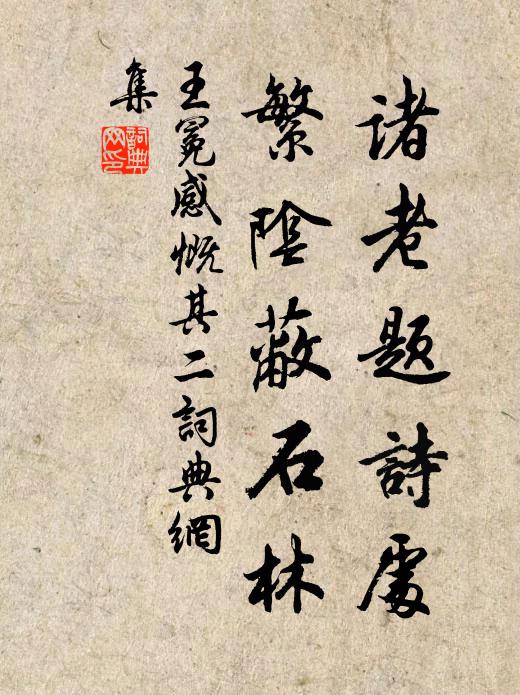 諸老題詩處
繁陰蔽石林
王冕感慨其二詞典網
集
詞典
网印